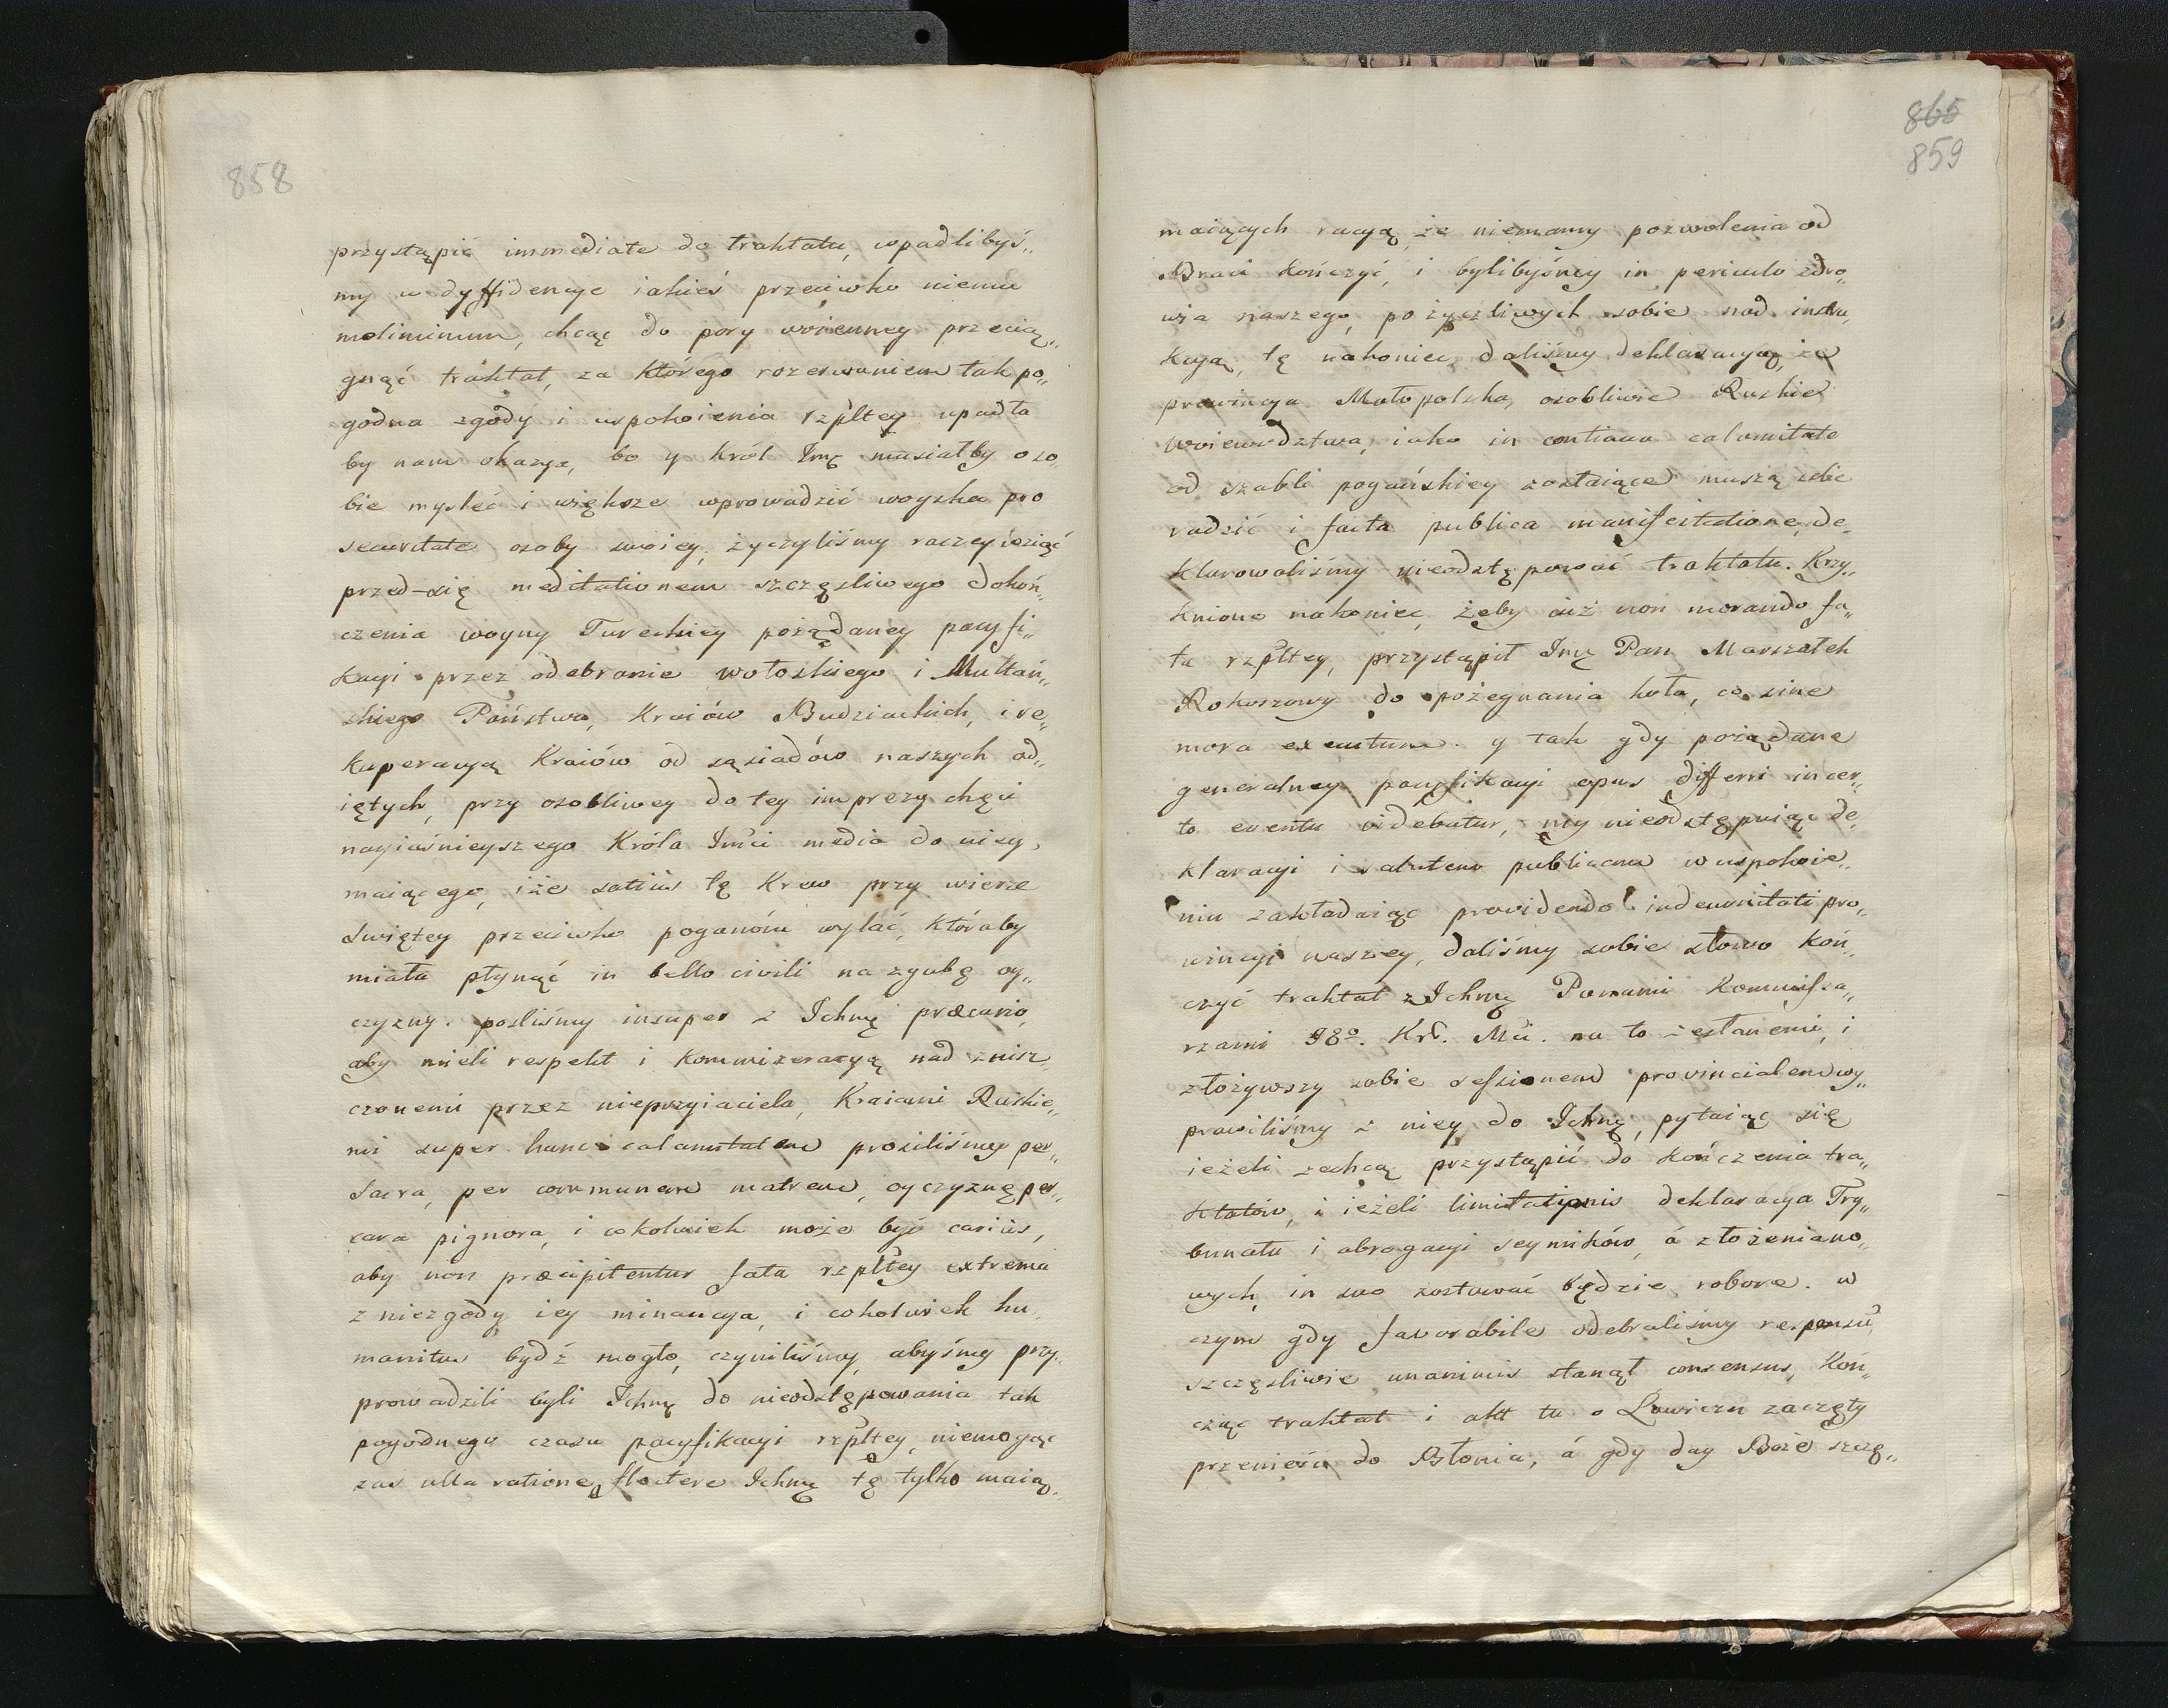 858
przystąpić immediate do traktatu, wpadlibyś„
my w dyffidencye iakieś przeciwko niemu
moliminum, chcąc do pory woienney przecią„
gnąć traktat, za którego rozerwaniem tak po„
godna zgody i uspokoienia rzpltey upadła
by nam okazya, bo y Król Jmę musiałby o so„
bie mysleć i większe wprowadzić woyska pro
securitate osoby swoiey, życzyliśmy raczey wziąć
przed-się meditationem szczęsliwego dokoń„
czenia woyny Tureckiey pożądaney pacyfi„
kacyi przez odebranie wołoskiego i Multań„
skiego Państwa, Kraiów Budziackich, i re„
kuperacyą Kraiów od sąsiadów naszych od„
iętych, przy osobliwey do tey imprezy chęci
nayiaśnieyszego Króla Jmci media do niey,
maiącego, iże satius tę Krew przy wierze
Swiętey przeciwko poganóm wylać, któraby
miała płynąć in bello civili na zgubę oy„
czyzny. posliśmy insuper z Ichmę precario,
aby mieli respekt i kommizeracyą nad znisz„
czonemi przez nieprzyiaciela, Kraiami Ruskie„
mi super hanc calamitatem prosiliśmy per„
sacra, per communem matrem, oyczyznę per„
cara pignora, i cokolwiek może być carius,
aby non præcipitentur fata rzpltey extrema
z niezgody iey minancya, i cokolwiek hu„
manitus bydź mogło, czyniliśmy, abyśmy przy„
prowadzili byli Ichmę do nieodstępowania tak
pogodnego czasu pacyfikacyi rzpltey, niemogąc
zas ulla ratione flectere Ichmę tę tylko maią„
865
859
maiących racyą że niemamy pozwolenia od
Braci kończyć, i bylibyśmy in periculo zdro„
wia naszego, pożyczliwych sobie nad instru„
kcyą, tę nakoniec daliśmy deklaracyą, że
prowincya Małopolska, osobliwie Ruskie
Woiewodztwa, iako in continua calamitate
od szabli pogańskiey zostaiące muszą sobie
radzić i facta publica manifestatione, de„
klarowaliśmy nieodstępować traktatu. Krzy„
kniono nakoniec, żeby iuż non morando fa„
ta rzpltey, przystąpił Jmę Pan Marszałek
Rokoszowy do pożegnania koła, co sine
mora executum. y tak gdy pożądane
generalney pacyfikacyi opus differri incer„
to eventu videbatur, my nieodstępuiąc de„
klaracyi i salutem publicam w uspokoie„
niu zakładaiąc providendo indemnitati pro„
wincyi naszey, daliśmy sobie słowo koń„
czyć traktat z Ichmę Panami Kommissa„
rzami J8º. Krl. Mci. na to zesłanemi, i
złożywszy sobie sessionem provincialem wy„
prawiliśmy z niey do Ichmę, pytaiąc się
ieżeli zechcą przystąpić do kończenia tra„
ktatów, i ieżeli limitationis deklaracya Try„
bunału i abrogacyi seymików, á złożenia no„
wych, in suo zostawać będzie robore. w
czym gdy favorabile odebraliśmy responsū,
szczęsliwie unanimis stanął consensus, Koń„
cząc traktat i akt tu o Lowiczu zaczęty
przenieść do Błonia, á gdy day Boże szczę„